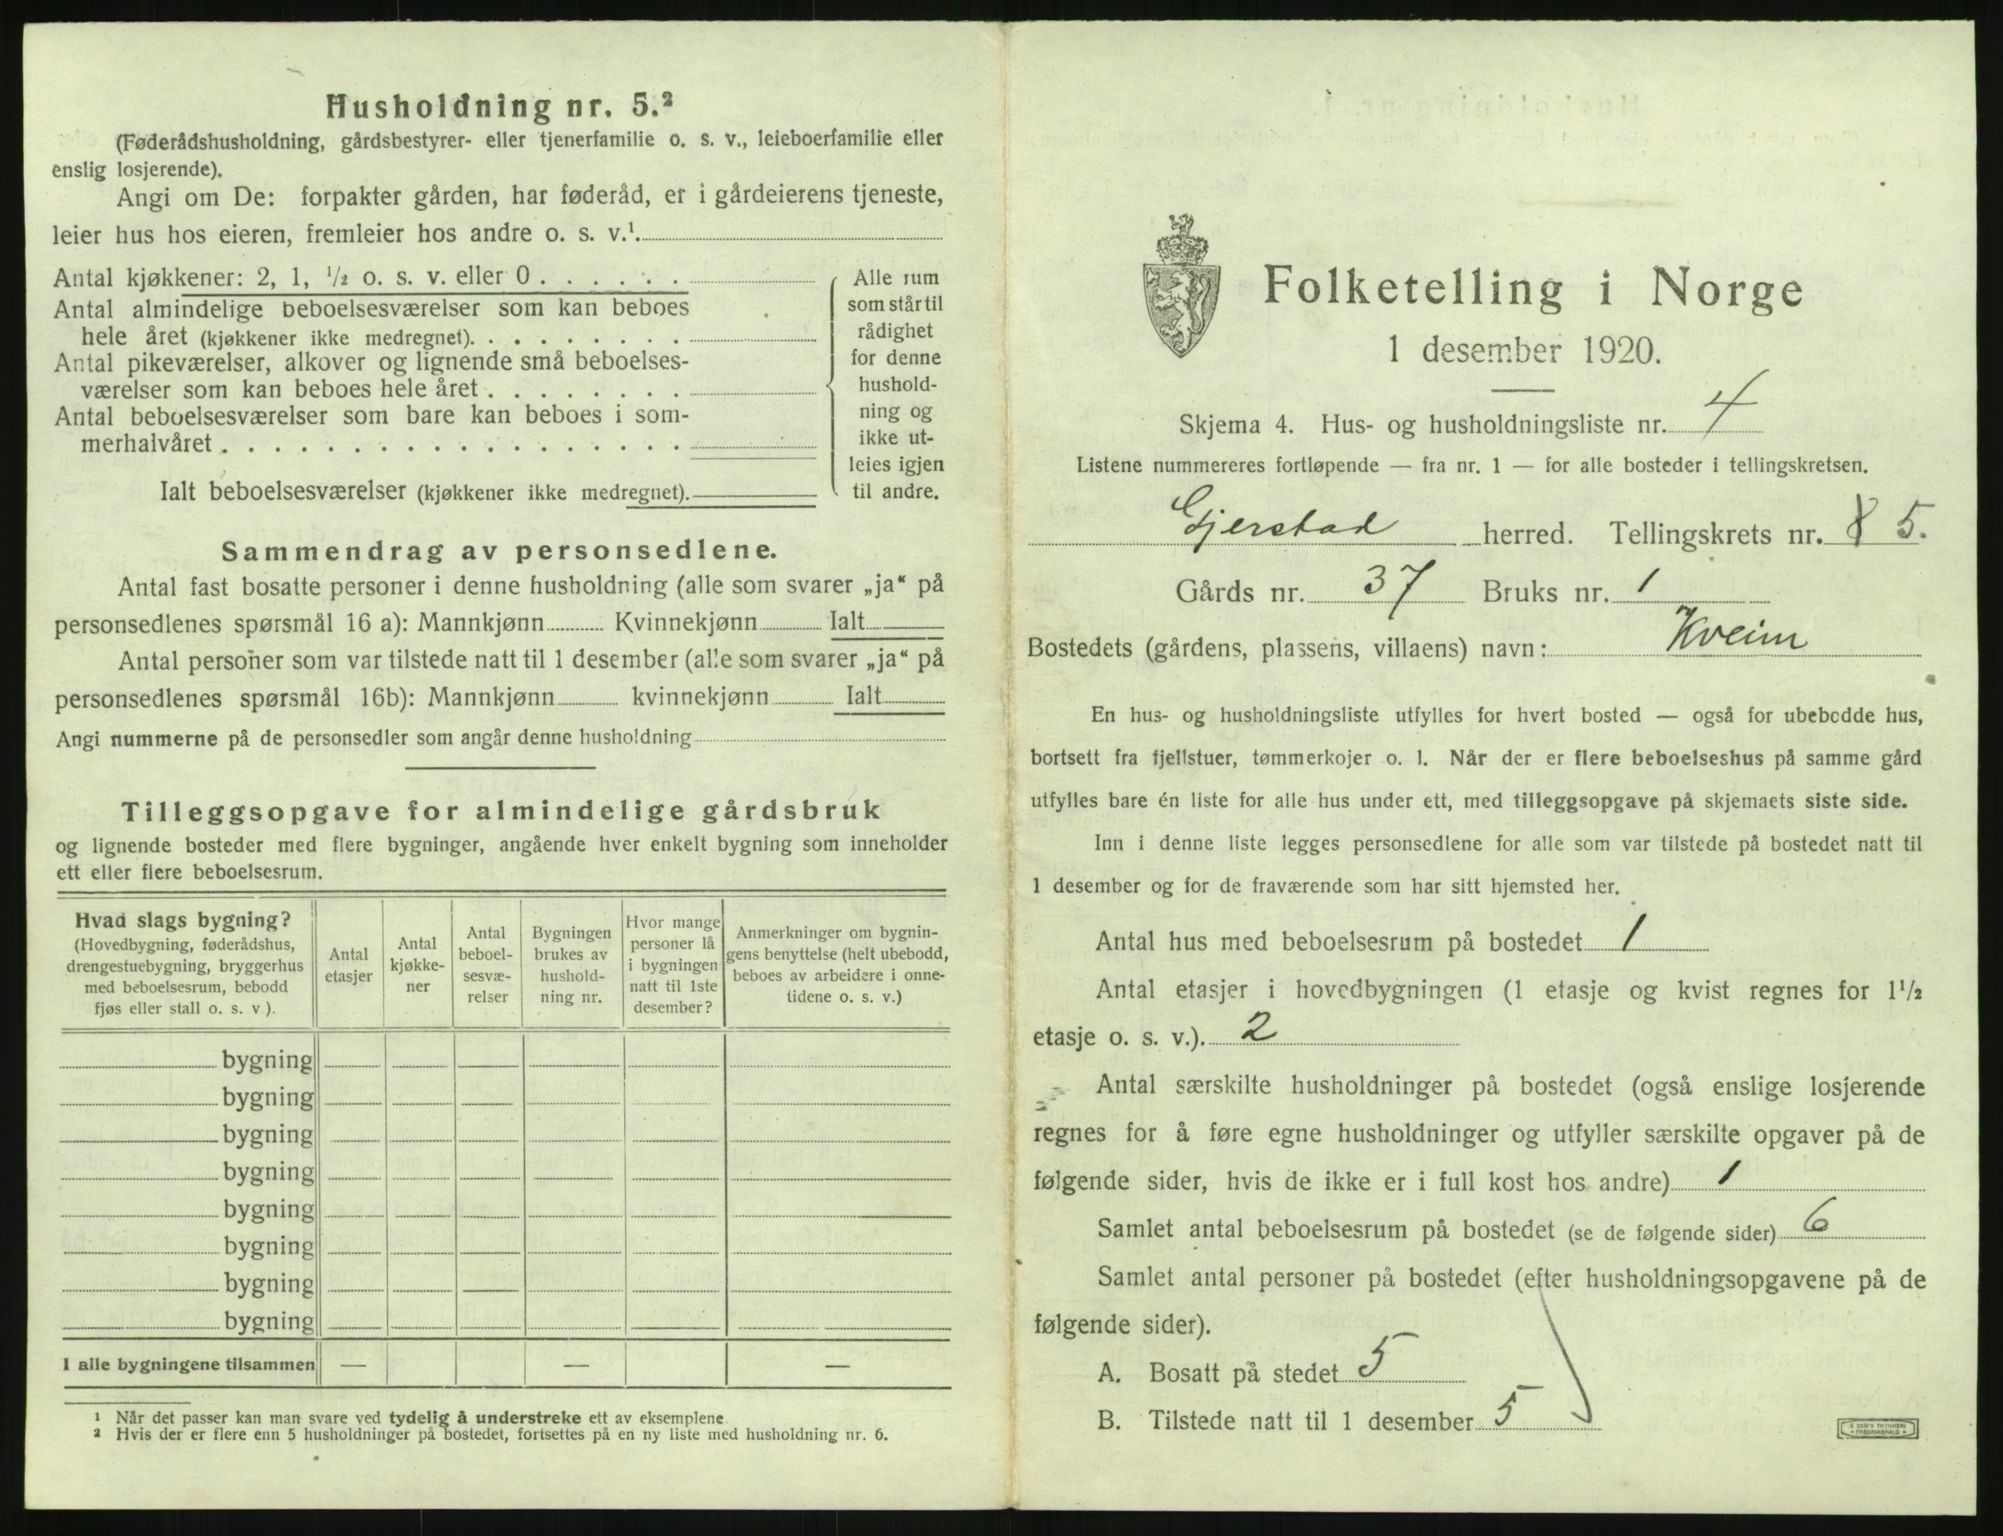 Husholdning nr. 5.²
(Føderådshusholdning, gårdsbestyrer- eller tjenerfamilie o. s. v., leieboerfamilie eller
enslig losjerende).
Angi om De: forpakter gården, har føderåd, er i gårdeierens tjeneste,
leier hus hos eieren, fremleier hos andre o. s. v.¹
Antal kjøkkener: 2, 1, ½ o. s. v. eller 0 . . . . . .
Antal almindelige beboelsesværelser som kan beboes
hele året (kjøkkener ikke medregnet). . . . . . . . .
Antal pikeværelser, alkover og lignende små beboelses-
værelser som kan beboes hele året . . . . . . . .
Antal beboelsesværelser som bare kan beboes i som-
merhalvåret . . . . . . . . . . . . . . . . . .
Ialt beboelsesværelser (kjøkkener ikke medregnet).
Alle rum
som står til
rådighet
for denne
hushold-
ning og
ikke ut-
leies igjen
til andre.
Sammendrag av personsedlene.
Antal fast bosatte personer i denne husholdning (alle som svarer „ja“ på
personsedlenes spørsmål 16 a): Mannkjønn Kvinnekjønn Ialt
Antal personer som var tilstede natt til 1 desember (alle som svarer „ja“ på
personsedlenes spørsmål 16b): Mannkjønn kvinnekjønn Ialt
Angi nummerne på de personsedler som angår denne husholdning
Tilleggsopgave for almindelige gårdsbruk
og lignende bosteder med flere bygninger, angående hver enkelt bygning som inneholder
ett eller flere beboelsesrum.
Hvad slags bygning?
(Hovedbygning, føderådshus,
drengestuebygning, bryggerhus
med beboelsesrum, bebodd
fjøs eller stall o. s. v ).
Antal
etasjer
Antal
kjøkke-
ner
Antal
beboel-
sesvæ-
relser
Bygningen
brukes av
hushold-
ning nr.
Hvor mange
personer lå
i bygningen
natt til 1ste
desember?
Anmerkninger om bygnin-
gens benyttelse (helt ubebodd,
beboes av arbeidere i onne-
tidene o. s. v.)
bygning
bygning
bygning
bygning
bygning
bygning
bygning
bygning
I alle bygningene tilsammen — — —
¹ Når det passer kan man svare ved tydelig å understreke ett av eksemplene.
² Hvis der er flere enn 5 husholdninger på bostedet, fortsettes på en ny liste med husholdning nr. 6.
Folketelling i Norge
1 desember 1920.
Skjema 4. Hus- og husholdningsliste nr. 4
Listene nummereres fortløpende — fra nr. 1 — for alle bosteder i tellingskretsen.
Gjerstad herred. Tellingskrets nr. 5.
Gårds nr. 37 Bruks nr. 1
Bostedets (gårdens, plassens, villaens) navn: Kveim
En hus- og husholdningsliste utfylles for hvert bosted — også for ubebodde hus,
bortsett fra fjellstuer, tømmerkojer o. l. Når der er flere beboelseshus på samme gård
utfylles bare én liste for alle hus under ett, med tilleggsopgave på skjemaets siste side.
Inn i denne liste legges personsedlene for alle som var tilstede på bostedet natt til
1 desember og for de fraværende som har sitt hjemsted her.
Antal hus med beboelsesrum på bostedet 1
Antal etasjer i hovedbygningen (1 etasje og kvist regnes for 1½
etasje o. s. v.). 2
Antal særskilte husholdninger på bostedet (også enslige losjerende
regnes for å føre egne husholdninger og utfyller særskilte opgaver på de
følgende sider, hvis de ikke er i full kost hos andre) 1
Samlet antal beboelsesrum på bostedet (se de følgende sider) 6
Samlet antal personer på bostedet (efter husholdningsopgavene på de
følgende sider).
A. Bosatt på stedet 5
B. Tilstede natt til 1 desember 5
E. SEM'S TRYKKERI
FREDRIKSHALD